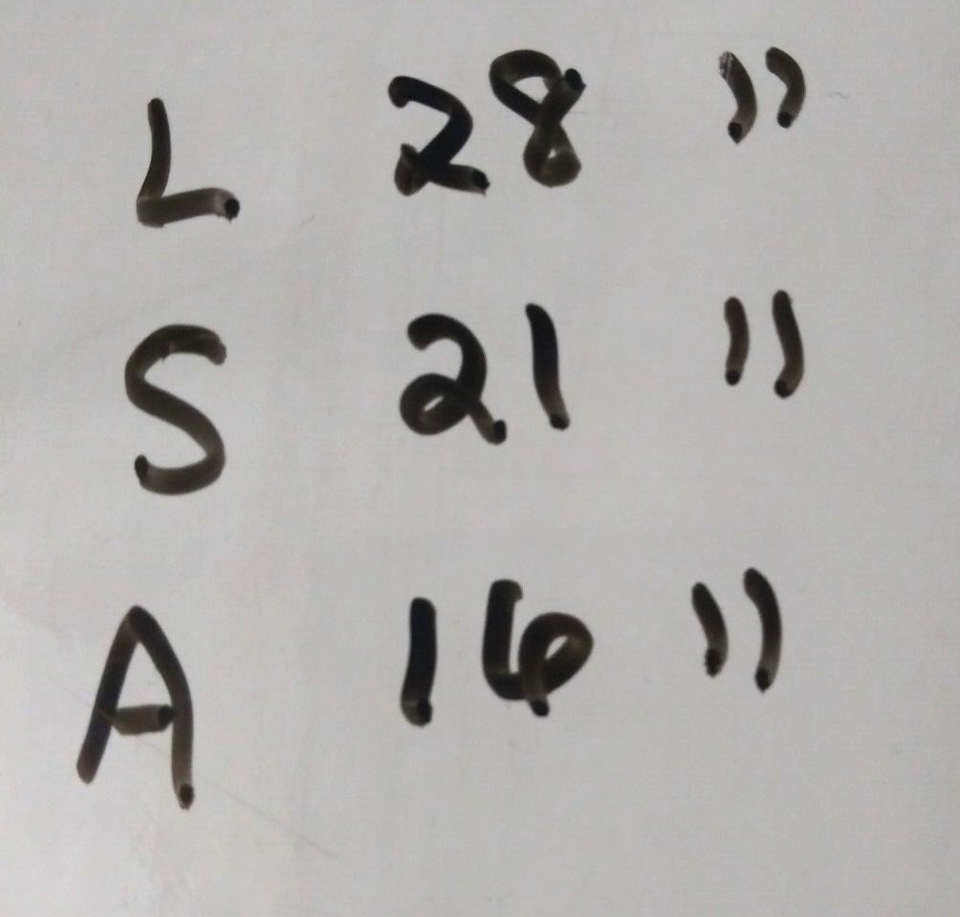 L 28 "
S 21 "
A 16 "